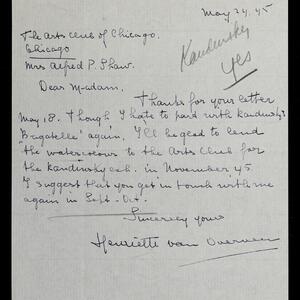 May 24. 45
The Arts Club of Chicago.
Chicago
Mrs Alfred P. Shaw.
Kandinsky
yes
Dear Madam,
Thanks for your letter
May 18. Though I hate to part with Kandinsky's
"Bagatelle" again, I'll be glad to lend
the watercolours to the Arts Club for
the Kandinsky exh. in November 45.
I suggest that you get in touch with me
again in Sept - Oct.
Sincerely yours
Henriette van